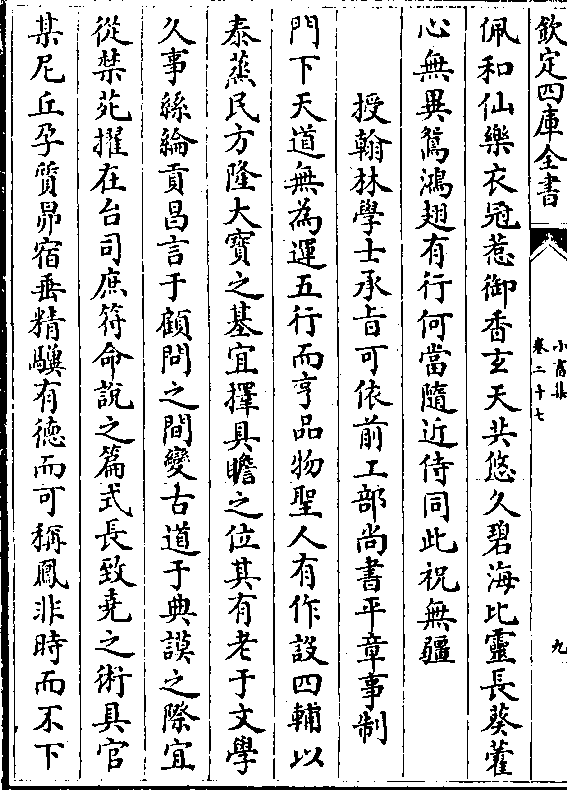 欽定四庫全書
小畜集
卷二十七
九
佩和仙樂衣冠惹御香玄天共悠久碧海比靈長葵藿
心無異鴛鴻翅有行何當隨近侍同此祝無疆
授翰林學士承旨可依前工部尚書平章事制
門下天道無為運五行而亨品物聖人有作設四輔以
泰蒸民方隆大寳之基宜擇具瞻之位其有老于文學
久事絲綸貢昌言于顧問之間變古道于典謨之際宜
從禁苑擢在台司庶符命說之篇式長致堯之術具官
某尼丘孕質昴宿垂精驥有徳而可稱鳳非時而不下